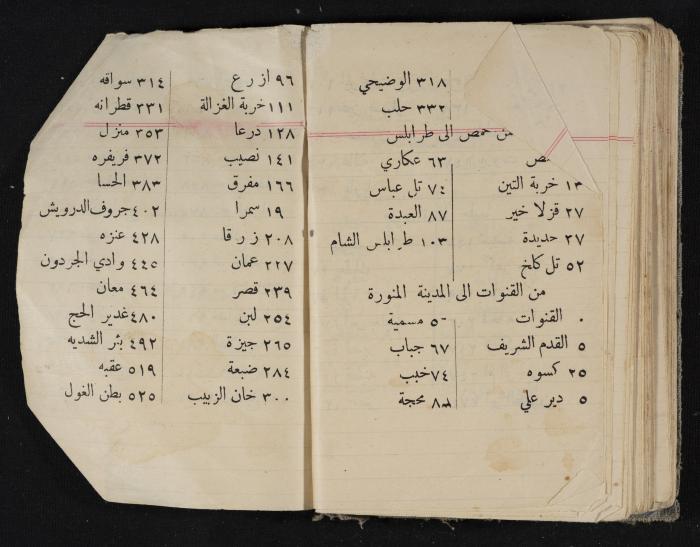 ٣١٨ الوضيحي
٣٣٢ حلب
حمص الى طرابلس
١٣ خربة التين
٢٧ قزلا خير
٢٧ حديدة
٥٢ تل كلخ
٦٣ عكاري
٧٤ تل عباس
٨٧ العبدة
١٠٣ طرابلس الشام
من القنوات الى المدينة المنورة
٠ القنوات
٥ القدم الشريف
٢٥ كسوه
٥ دير علي
مسمية
٦٧ جباب
٧٤ خبب
محجة
٩٦ ازرع
١١١ خربة الغزالة
١٢٨ درعا
١٤١ نصيب
١٦٦ مفرق
١٩ سمرا
٢٠٨ زرقا
٢٢٧ عمان
٢٣٩ قصر
٢٥٤ لبن
٢٦٥ جيزة
٢٨٤ ضبعة
٣٠٠ خان الزبيب
٣١٤ سواقه
٣٣١ قطرانه
٣٥٣ منزل
٣٧٢ فريفره
٣٨٣ الحسا
٤٠٢ جروف الدرويش
٤٢٨ عنزه
٤٤٥ وادي الجردون
٤٦٤ معان
٤٨٠ غدير الحج
٤٩٢ بئر الشديه
٥١٩ عقبه
٥٢٥ بطن الغول